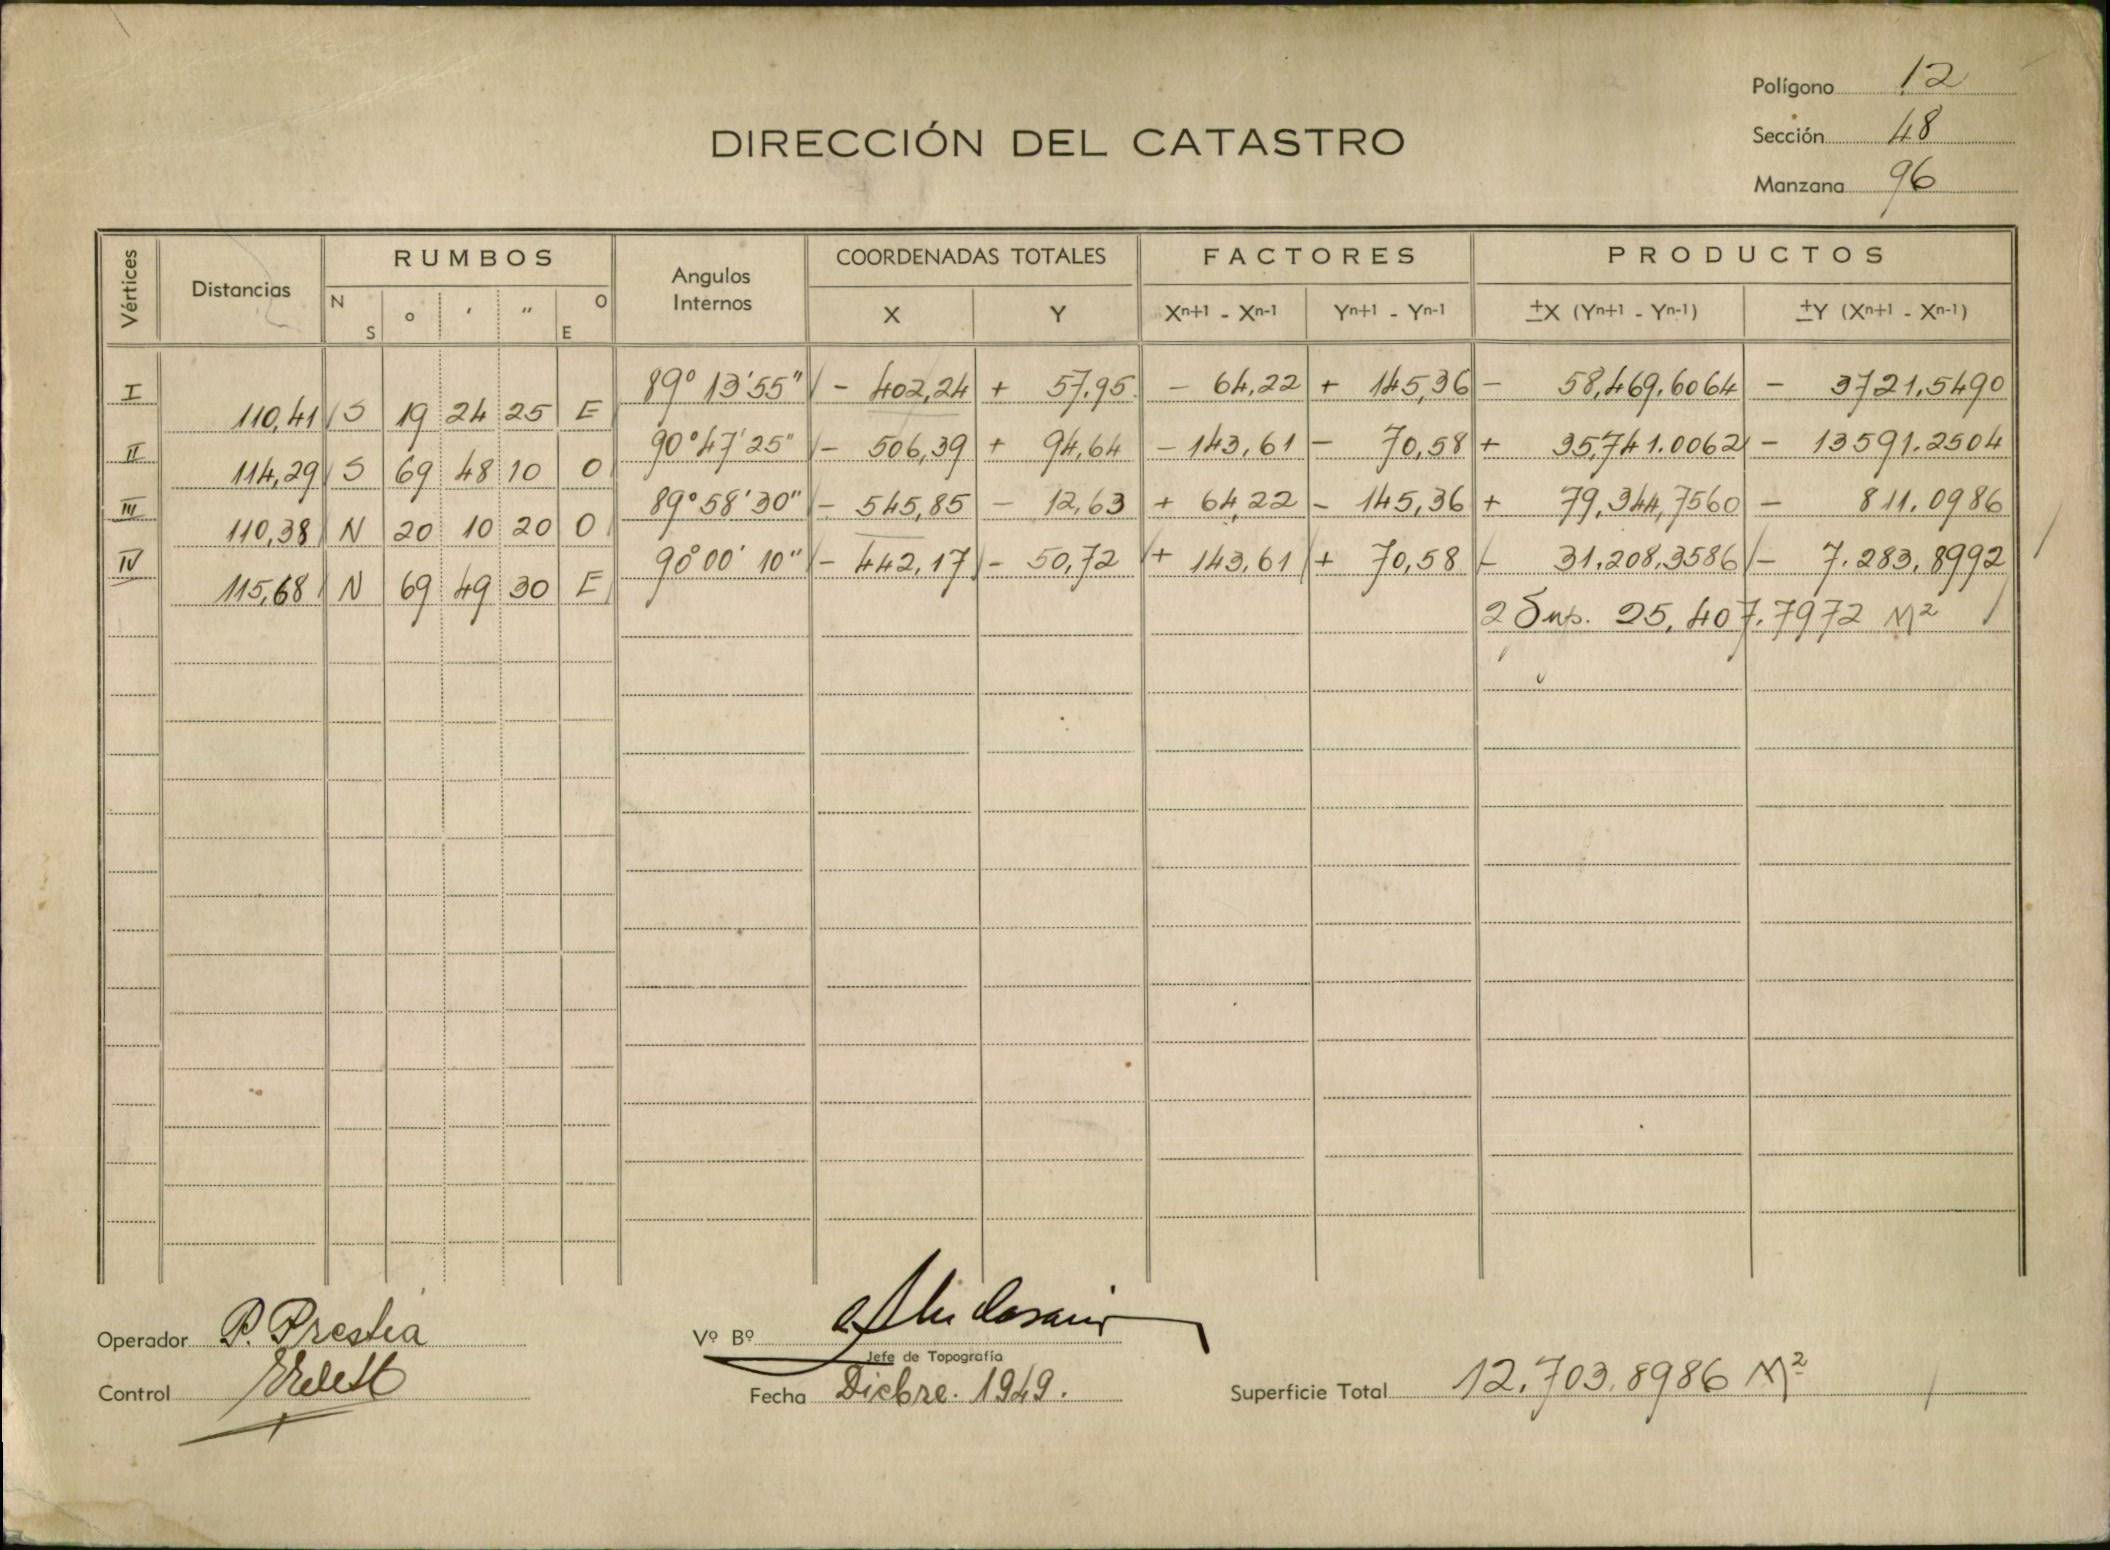 Polígono 12
DIRECCIÓN DEL CATASTRO
Sección 48
Manzana 96
Vértices Distancias RUMBOS Angulos Internos COORDENADAS TOTALES FACTORES PRODUCTOS
N S ° ' " O E X Y Xⁿ⁺¹ - Xⁿ⁻¹ Yⁿ⁺¹ - Yⁿ⁻¹ ±X (Yⁿ⁺¹ - Yⁿ⁻¹) ±Y (Xⁿ⁺¹ - Xⁿ⁻¹)
I 89° 13' 55" - 402,24 + 57,95 - 64,22 + 145,36 - 58,469.6064 - 3721,5490
110,41 S 19 24 25 E
II 90° 47' 25" - 506,39 + 94,64 - 143,61 - 70,58 + 35,741.0062 - 13591.2504
114,29 S 69 48 10 O
III 89° 58' 30" - 545,85 - 12,63 + 64,22 - 145,36 + 79,344,7560 - 811,0986
110,38 N 20 10 20 O
IV 90° 00' 10" - 442,17 - 50,72 + 143,61 + 70,58 - 31.208,3586 - 7.283,8992
115,68 N 69 49 30 E
2 Sup. 25,407.7972 M²
Operador P. Prestia
Vº Bº
Jefe de Topografía
Control
Fecha Dicbre. 1949.
Superficie Total 12.703,8986 M²